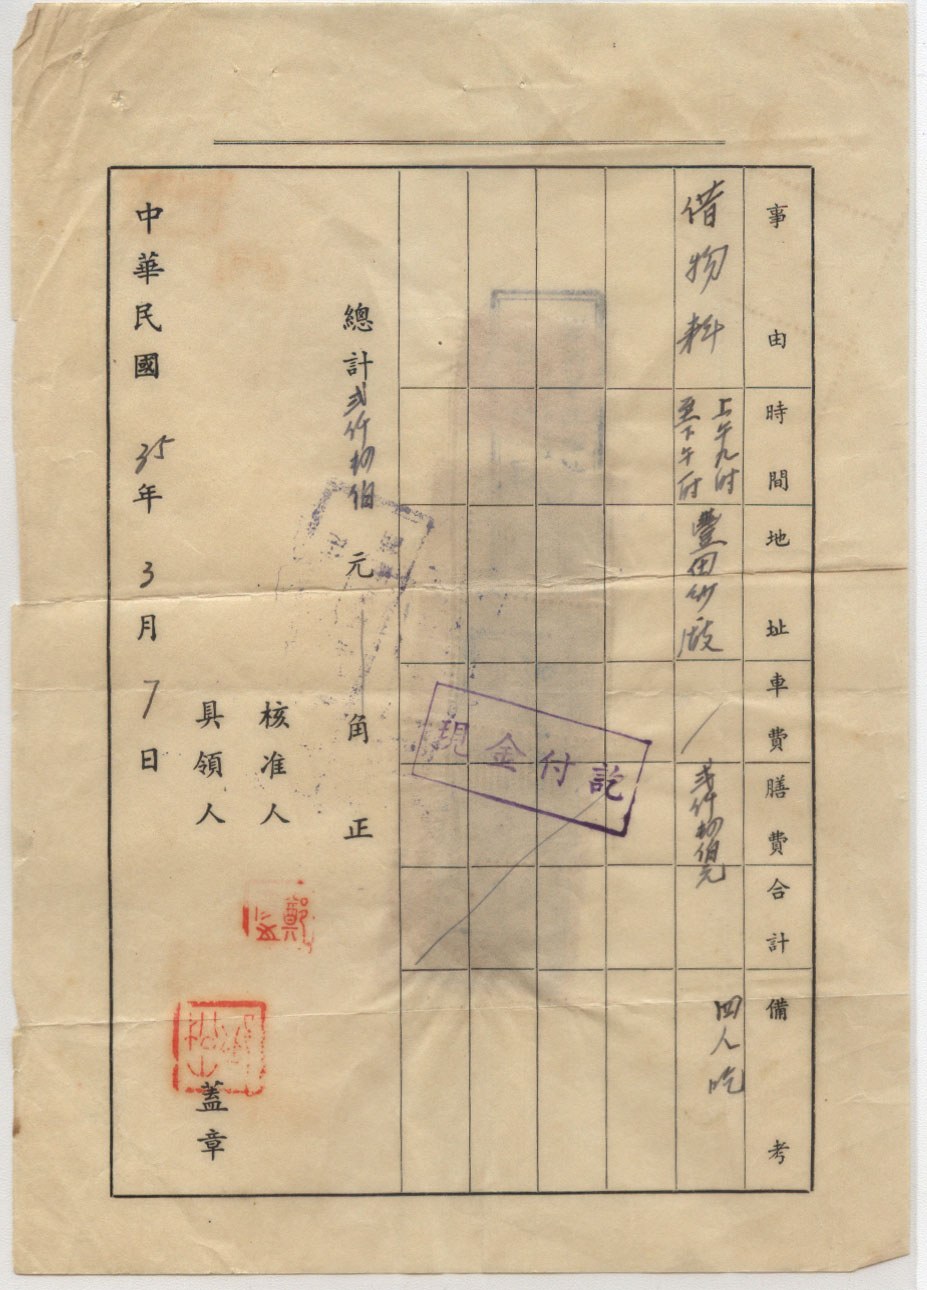 事由 時間 地址 車費 膳費 合計 備考
借物料
上午九时
至下午时
豐田紗廠
弍仟捌佰元
四人吃
現金付訖
總計弍仟捌佰元角正
核准人
鄭
具領人 蓋章
中華民國35年3月7日